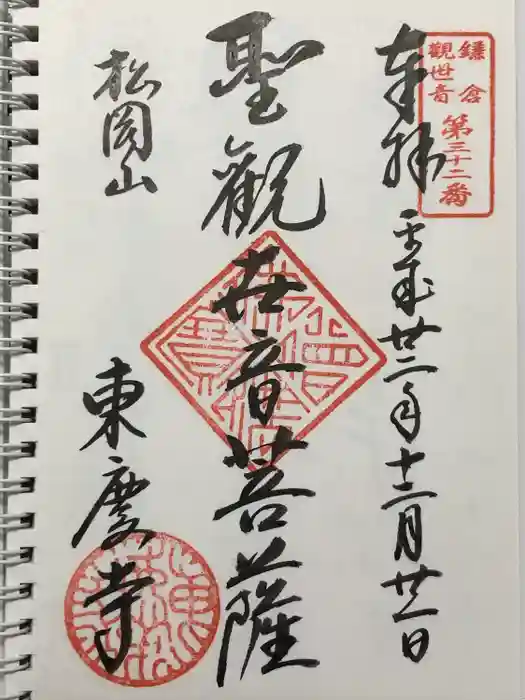 鎌倉
觀世音
第三十二番
奉拝
平成廿二年十二月廿二日
聖觀世音菩薩
松岡山
東慶寺